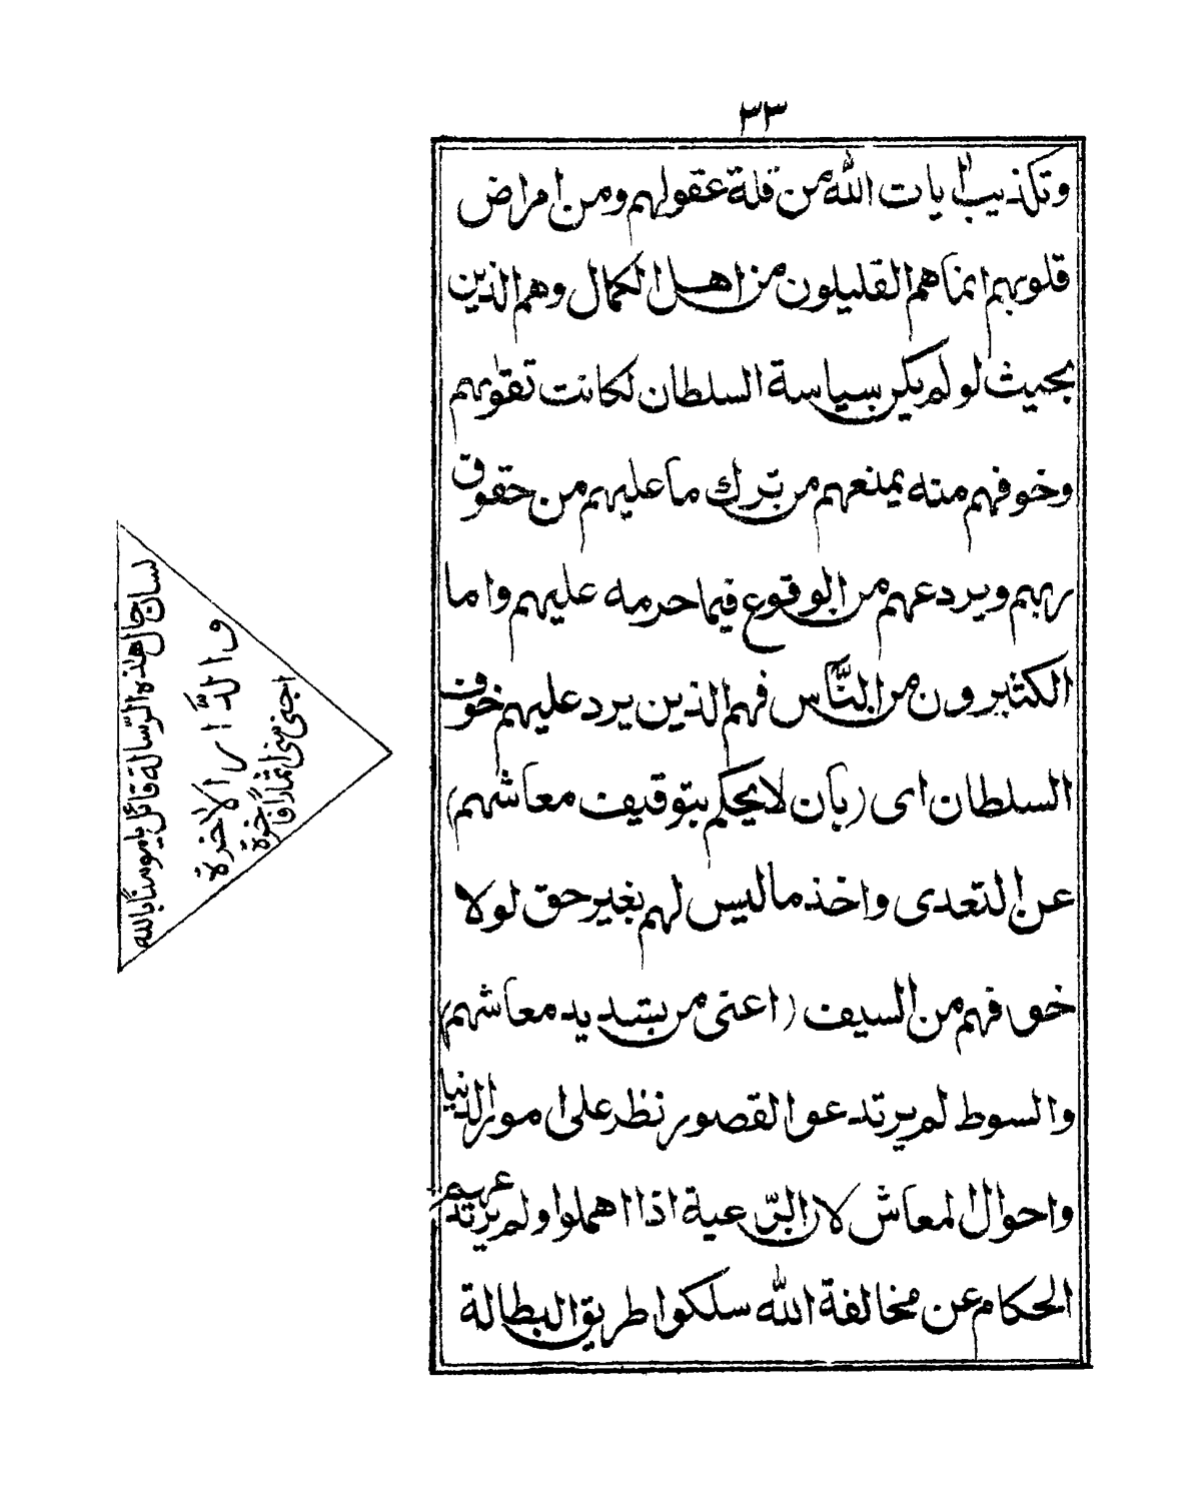 ٣٣
وتكذيب ايات الله من قلة عقولهم ومن امراض
قلوبهم انما هم القليلون من اهل الكمال وهم الذين
بحيث لو لم يكن سياسة السلطان لكانت تقوٰىهم
وخوفهم منه يمنعهم من ترك ما عليهم من حقوق
ربهم ويردعهم من الوقوع فيما حرمه عليهم واما
الكثيرون من النَّاس فهم الذين يرد عليهم خوف
السلطان اى (بان لا يحكم بتوقيف معاشهم)
عن التعدى واخذ ما ليس لهم بغير حق لولا
خوفهم من السيف (اعنى من بتديد معاشهم)
والسوط لم يرتدعوا لقصور نظر على امور الدنيا
واحوال المعاش لان الرّعية اذا اهملوا ولم يرتدعهم
الحكام عن مخالفة الله سلكوا طريق البطالة
لسان حال هذه الرّسالة قائل يا مومنًا بالله
والدَّار الاٰخرة
اجنى منى اثمارًا فاخرة